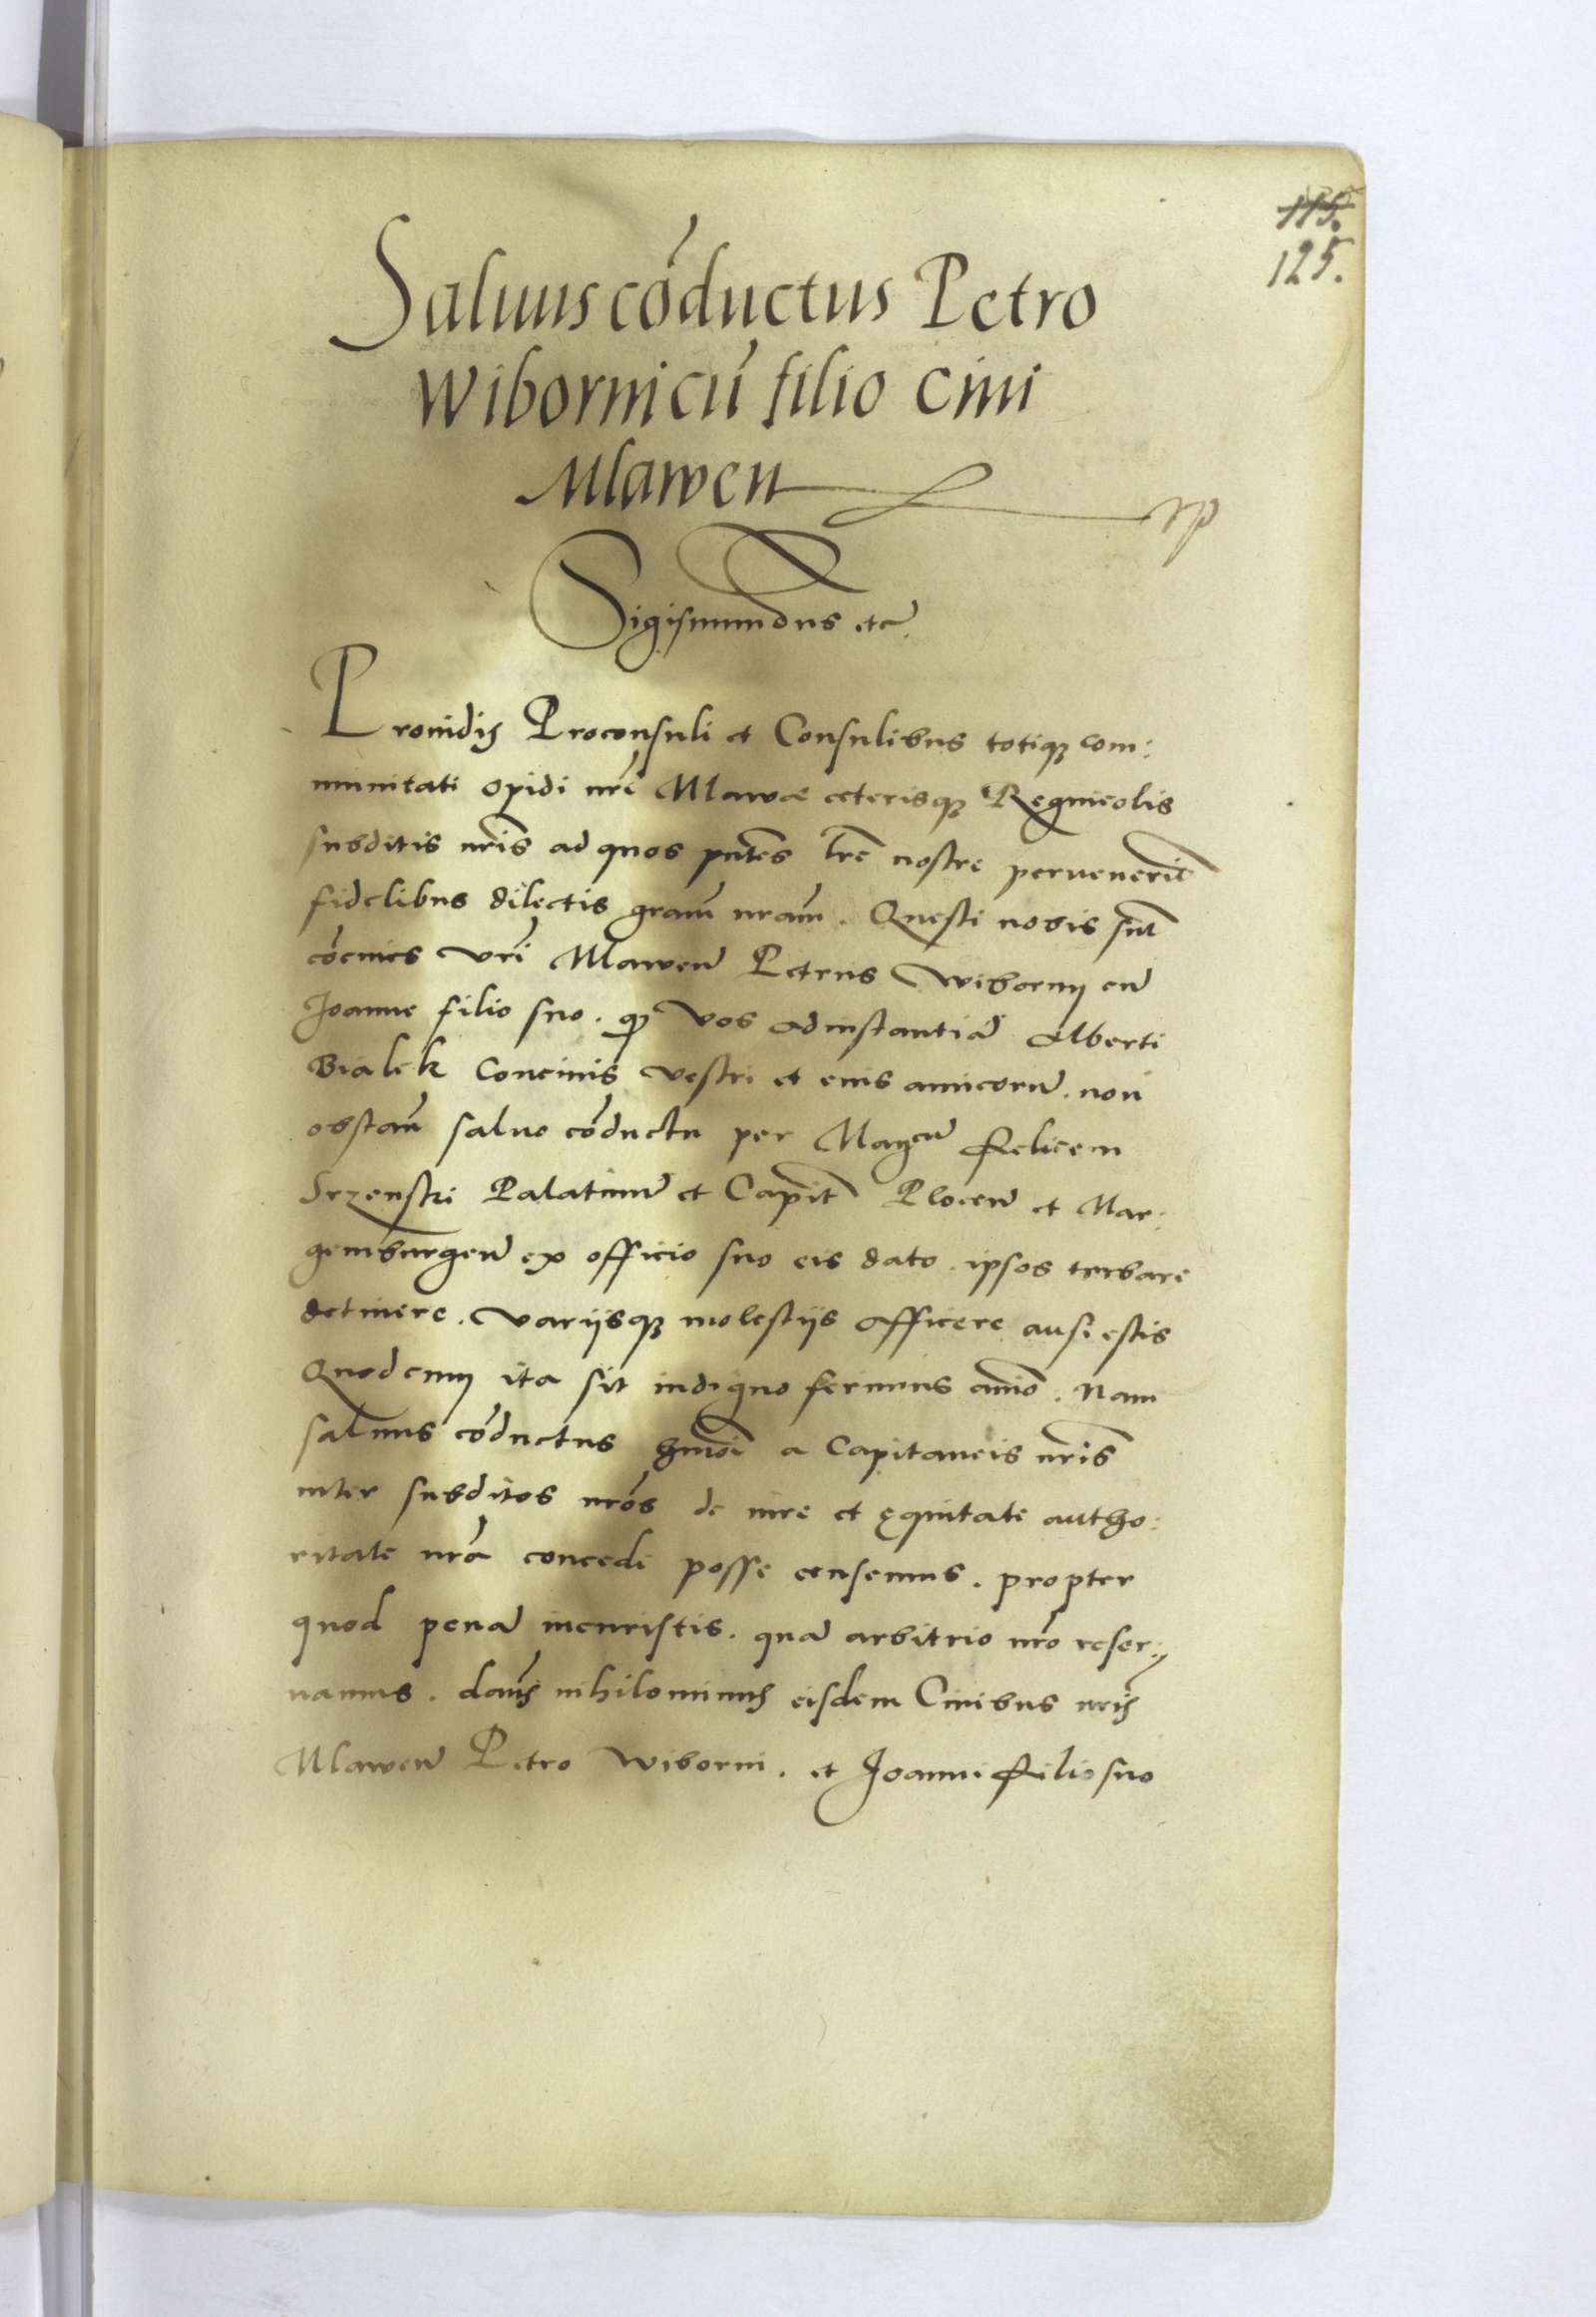 115.
125.
Saluus cōductus Petro
Wiborni cū filio ciui
Mlaweñ
Sigismundus etc̄
Prouidis Proconsuli et Consulibus totiq₃ com:
munitati opidi nr̄i Mlawæ ceterisq₃ Regnicolis
subditis nr̄is ad quos pn̄tes lr̄e nostre peruenerit̄
fidelibus dilectis gra͞m nra͞m. Questi nobis sūt
cōciues vr̄i Mlaweñ Petrus Wiborny cū
Joanne filio suo. q̄ vos ad instantiā Alberti
Bialek Conciuis vestri et eius amicorū. non
obstañ saluo cōductu per Mag͞cu͞ Felicem
Srzenski Palatinū et Capit̄ Ploceñ et Mar:
gemburgeñ ex officio suo eis dato. ipsos turbare
detinere. Varijsq₃ molestijs afficere ausi estis
Quod cum ita sit indigno ferimus a͞io. Nam
saluus cōductus hm̄oi a Capitaneis nr̄is
inter subditos nr̄os de iure et ęquitate autho:
ritate nr̄a concedi posse censemus. propter
quod penā incuristis. quā arbitrio nr̄o reser:
uamus. dañs nihilominus eisdem Ciuibus nr̄is
Mlaweñ Petro Wiborni. et Joanni filio suo